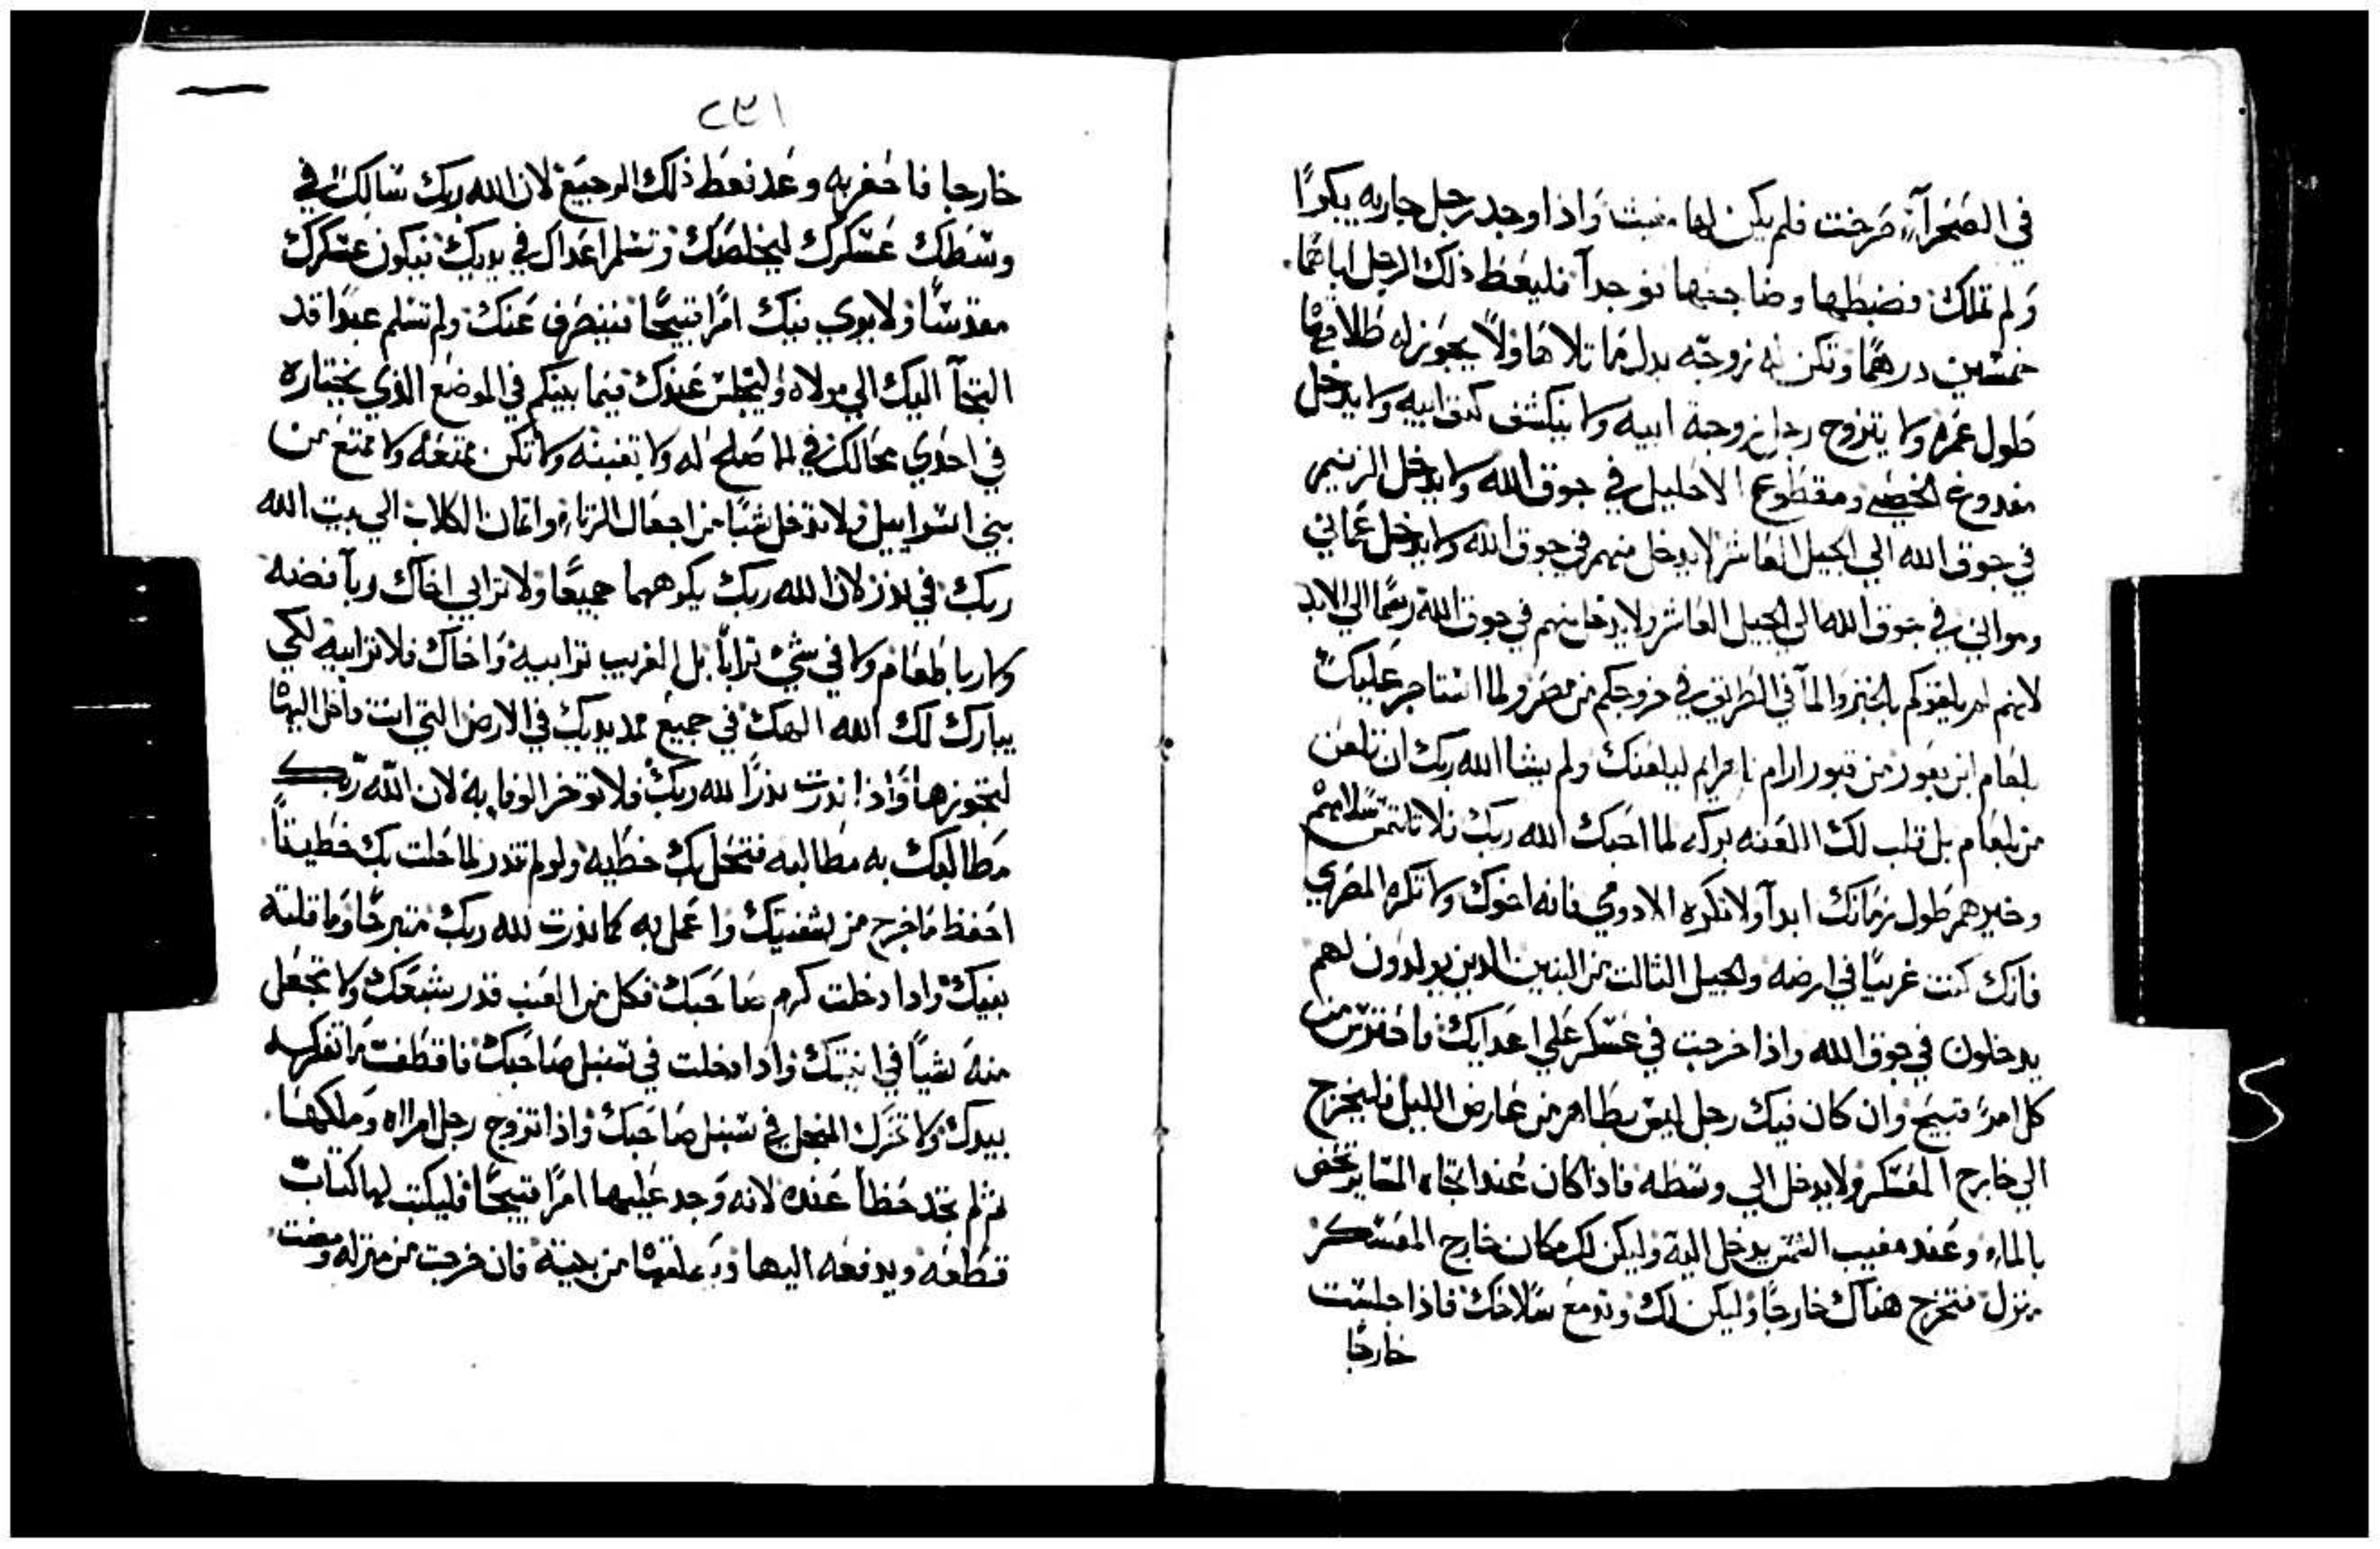 في الصحرآء صرخت فلم يكن لها مغيث واذا وجد رجل جاريه بكرًا
ولم تملك فضبطها وضاجعها فوجدآ فليعط ذلك الرجل اباهما
خمسين درهمًا وتكن له زوجه بدل ما تلاها ولا يجوز له طلاقها
طول عمره ولا يتزوج رجل زوجة ابيه ولا ينكشف كنف ابيه ولا يدخل
مغدوغ الخصي ومقطوع الاحليل في جوق الله ولا يدخل الزنيم
في جوق الله الي الجيل العاشر لا يدخل منهم في جوق الله ولا يدخل عماني
وموابي في جوق الله الي الجيل العاشر ولا يدخل منهم في جوق الله رسمًا الي الابد
لانهم لم يلقوكم بالخبز والمآ في الطريق في خروجكم من مصر ولما استاجر عليك
بلعام ابن بعور من فتور ارام نا هرايم ليلعنك ولم يشا الله ربك ان تلعن
من بلعام بل قلب لك اللعنه بركه لما احبك الله ربك فلا تلتمس سلامهم
وخيرهم طول زمانك ابدآ ولا تكره الادومي فانه اخوك ولا تكره المصري
فانك كنت غريبًا في ارضه والجيل الثالت من البنين الدين يولدون لهم
يدخلون في جوق الله واذا خرجت في عسكر علي اعدايك فاحترس من
كل امرًا قبيح وان كان فيك رجل ليس بطاهر من عارض الليل فليخرج
الي خارج المعسكر ولا يدخل الي وسطه فاذا كان عند اتجاه المسا يرتحض
بالماء وعند مغيب الشمس يدخل اليه وليكن لك مكان خارج المعسكر
منزل فتخرج هناك خارجًا وليكن لك وتد مع سلاحك فاذا جلست
خارجًا
٢٣١
خارجا فاحفر به وعد فغط ذلك الرجيع لان الله ربك سالك في
وسطك عسكرك ليخلصك وتسلم اعداك في يديك فيكون عسكرك
مقدسًا ولا يوي فيك امرًا قبيحًا فينصرف عنك ولم تسلم عبدًا قد
التجآ اليك الي مولاه وليجلس عندك فيما بينكم في الموضع الذي يختاره
في احدي محالك في لما صلح له ولا تغبنه ولا تكن ممتعه ولا ممتع من
بني اسراييل ولا تدخل شيًا من اجعال الزناء واتمان الكلاب الي بيت الله
ربك في نذر لان الله ربك يكرههما جميعًا ولا ترابي اخاك ربآ فضه
ولا ربا طعام ولا في شيء ترابآ بل الغريب ترابيه واخاك فلا ترابيه لكي
يبارك لك الله الهك في جميع مد يديك في الارض التي انت داخل اليها
لتحوزها واذا نذرت نذرًا لله ربك فلا توخر الوفا به لان الله ربك
مطالبك به مطالبه فتحل بك خطيه ولو لم تنذر لما حلت بك خطيتآ
احفظ ما خرج من شفتيك واعمل به كما نذرت لله ربك متبرعًا وما قلته
بفيك واذا دخلت كرم صاحبك فكل من العنب قدر شبعك ولا تجعل
منه شيآ في انيتك واذا دخلت في سنبل صاحبك فاقطفت ما تفركه
بيدك ولا تحرك المنجل في سنبل صاحبك واذا تزوج رجل امراه وملكها
ثم لم تجد حظآ عنده لانه وجد عليها امرًا قبيحًا فليكتب لها كتاب
قطعه ويدفعه اليها ويطلقها من بيته فان خرجت من منزله ومضت